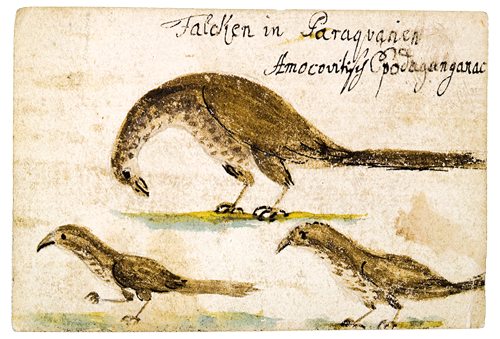 Falcken in Paraquarien
Amocovitisş Epodaganganac